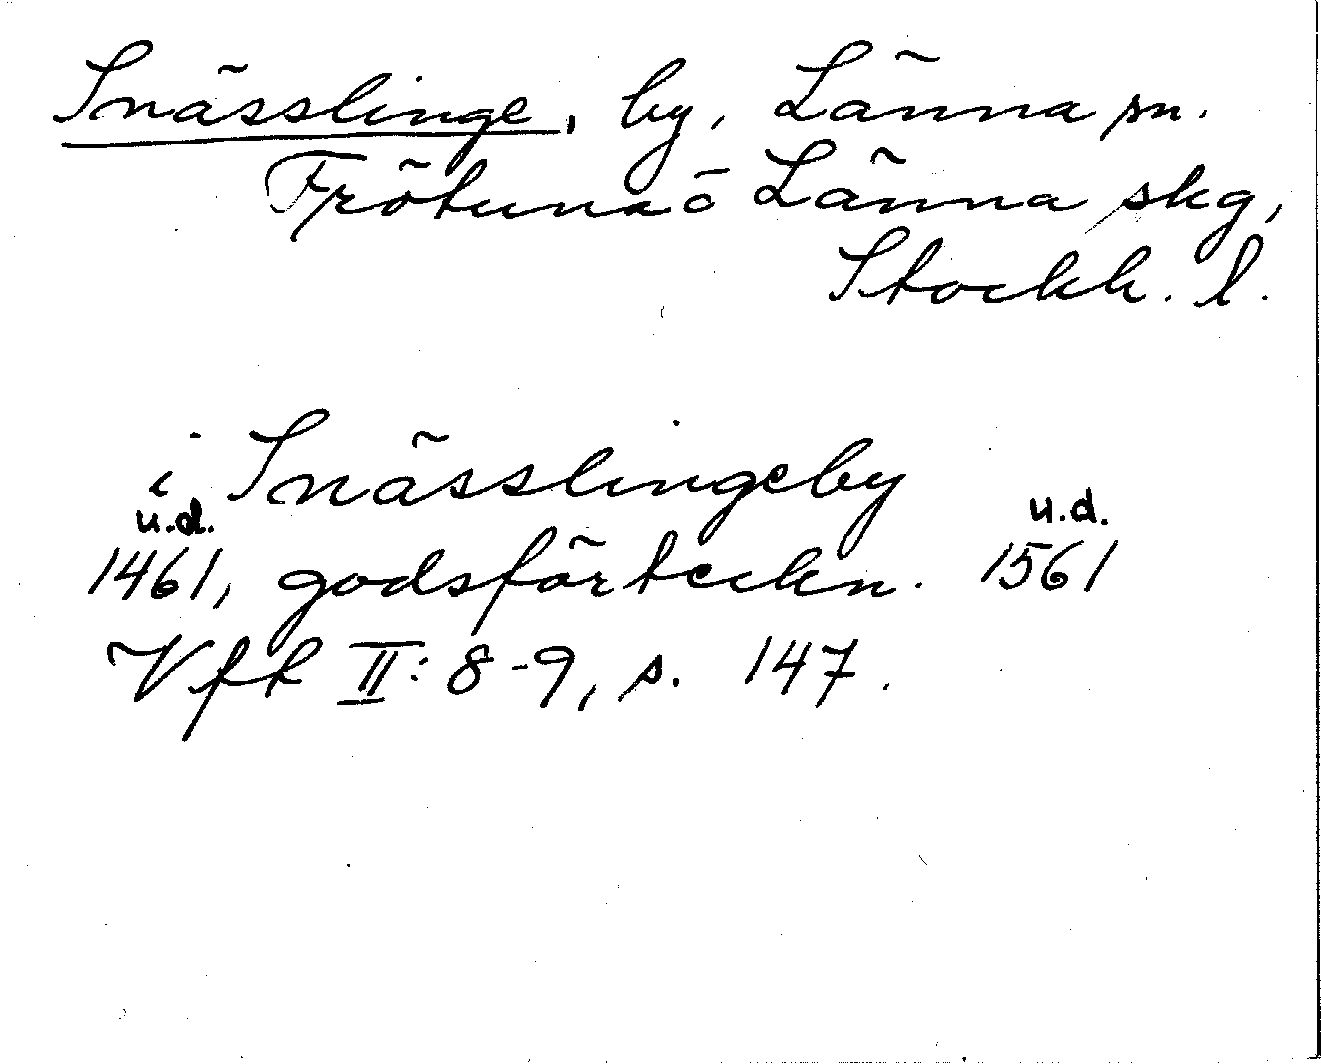 Snässlinge, by, Länna sn.
Frötuna o Länna skg,
Stockh. l.
i Snässlingeby
u.d. u.d.
1461, godsförteckn. 1561
Vfk II: 8-9, s. 147.